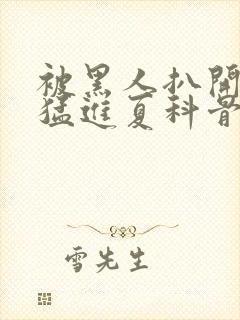 被黑人扒開
猛進夏科普
雪先生